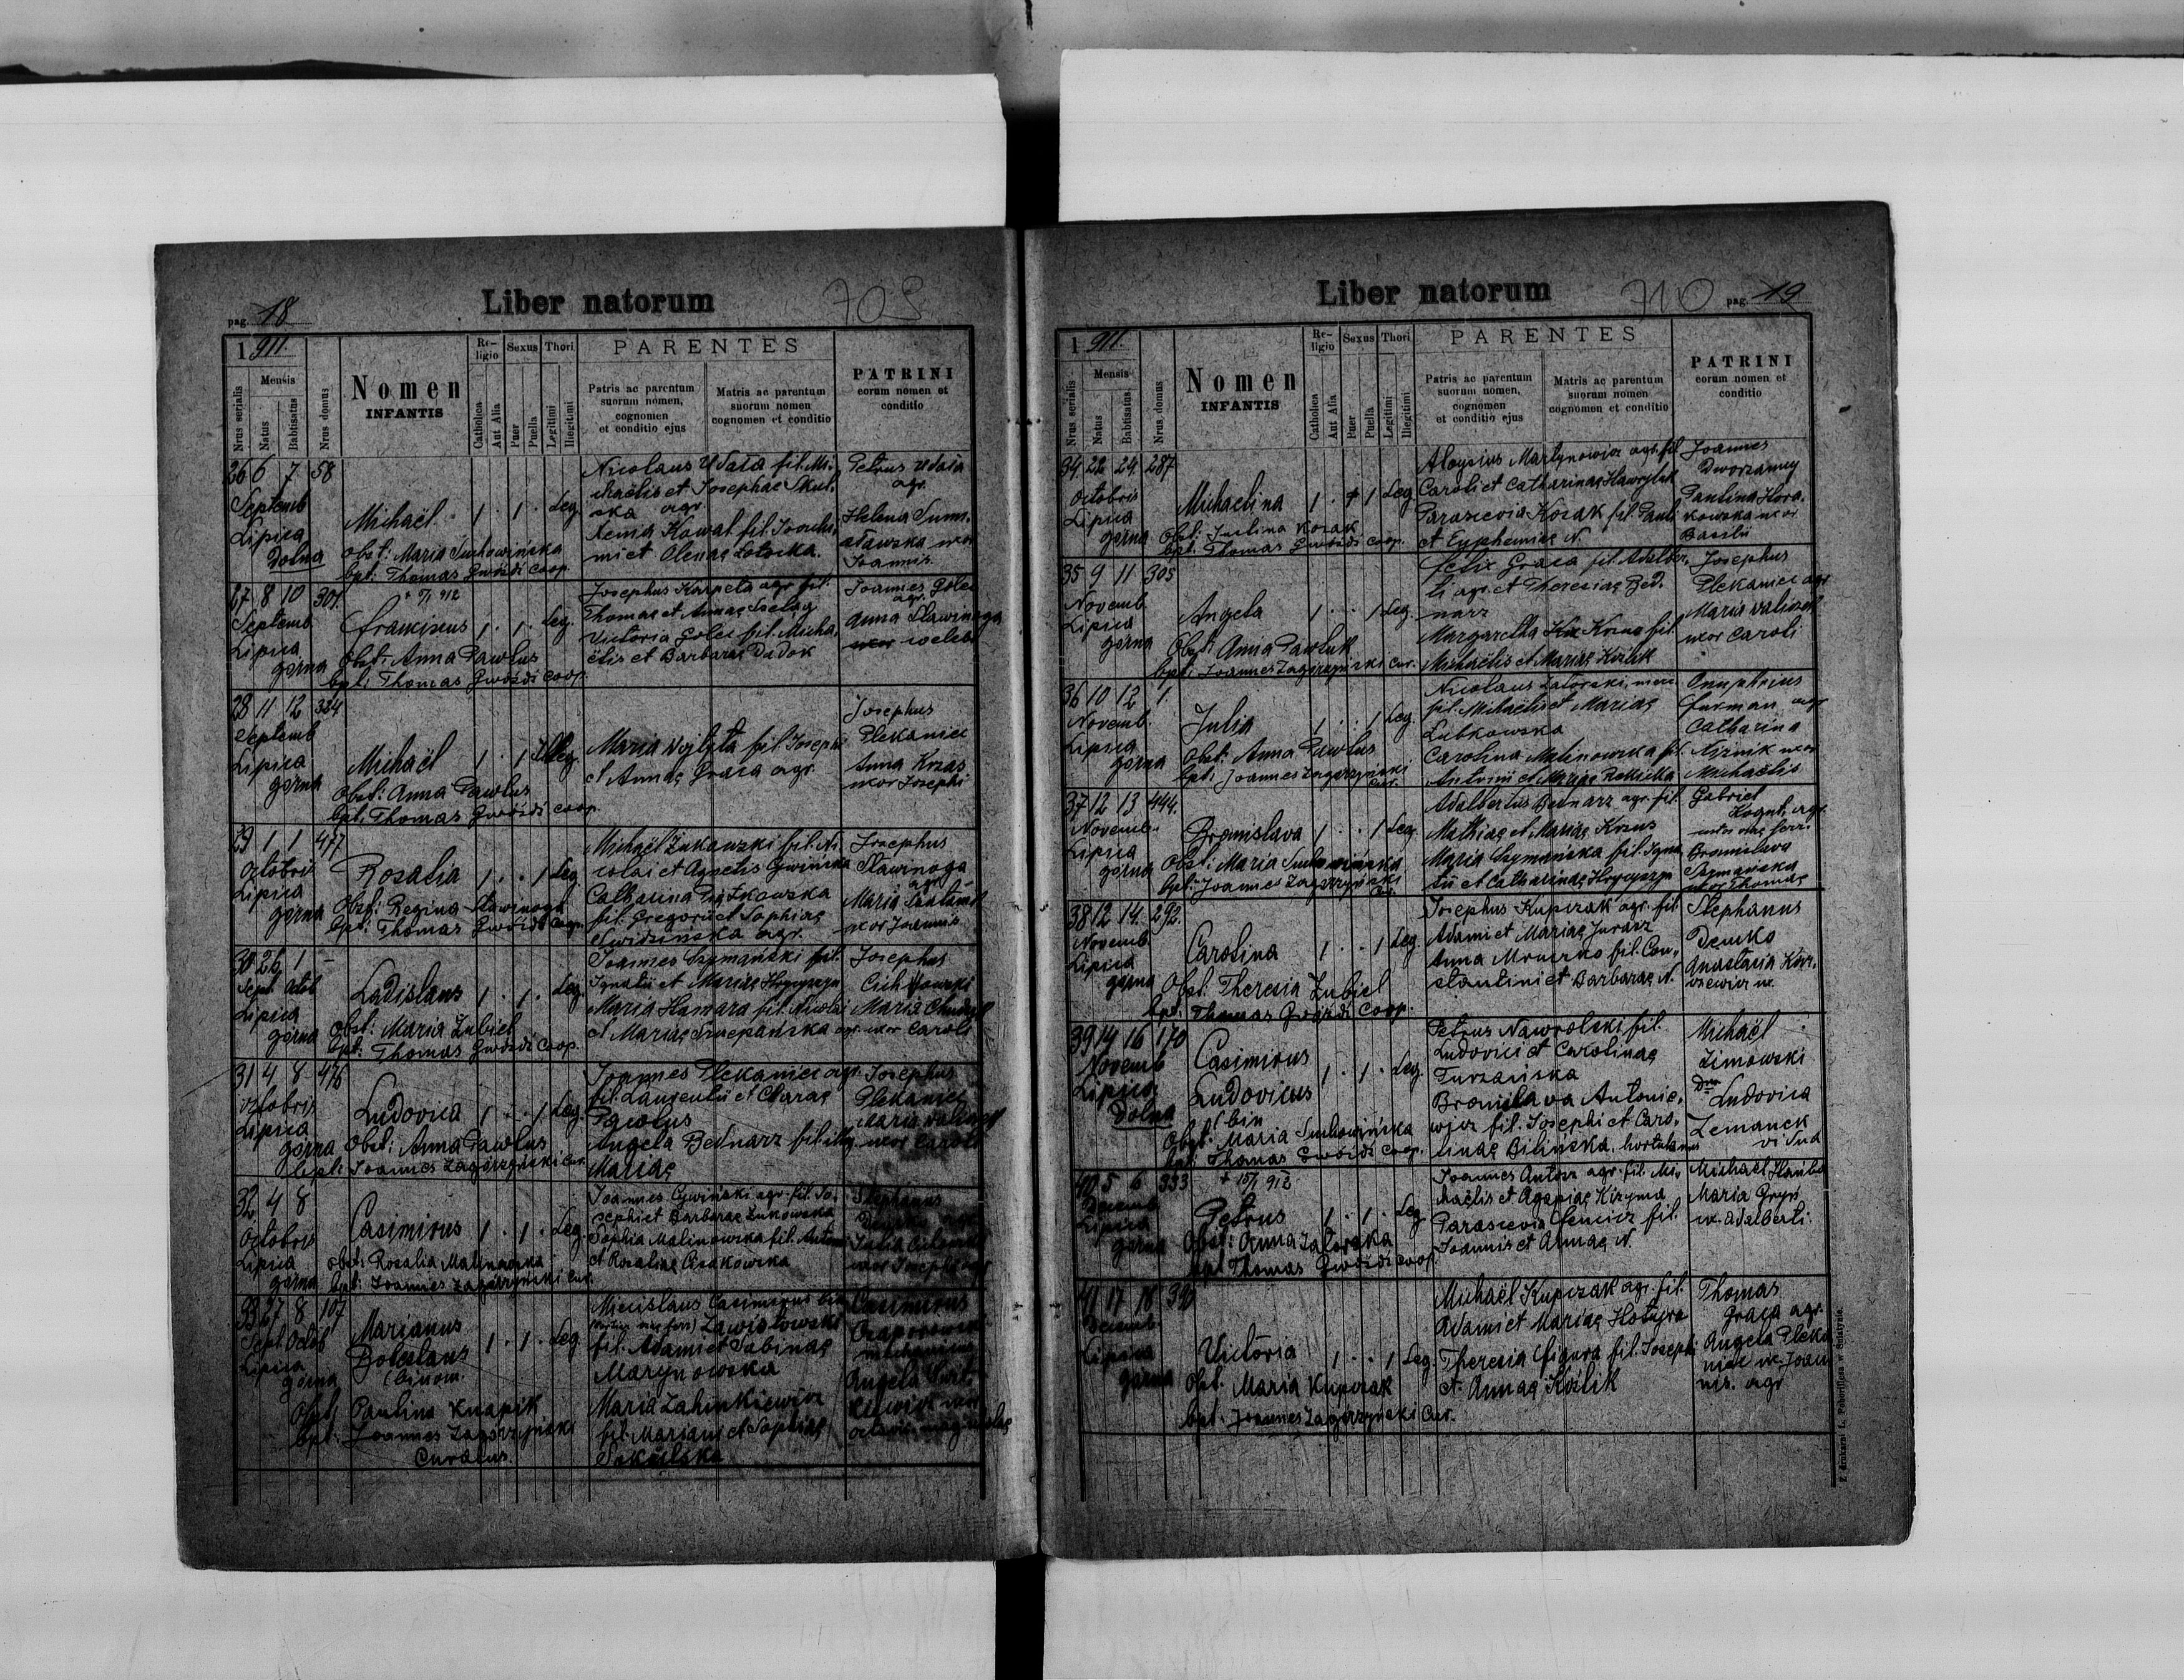 pag. 18
Liber natorum
709
1911.
Nrus serialis
Mensis
Natus
Babtisatus
Nrus domus
Nomen
INFANTIS
Re-
ligio
Catholica
Aut Alia
Sexus
Puer
Puella
Thori
Legitimi
Illegitimi
PARENTES
Patris ac parentum
suorum nomen,
cognomen
et conditio ejus
Matris ac parentum
suorum nomen
cognomen et conditio
PATRINI
eorum nomen et
conditio
26 6 7 58
Septemb
Lipica
Dolna
Michaël 1 . 1 . Leg
obst: Maria Suchowińska
bpt: Thomas Gwóźdź coop.
Nicolaus Udala fil. Mi-
chaëlis et Josephae Skul-
ska agr.
Xenia Kowal fil. 
mi et Olenae Lotocka.
Petrus Udala
agr.
Helena Sum-
sławska uxor
Joannis.
27 8 10 301.
Septemb
Lipica
górna
Franciscus 1 . 1 . Leg.
Obst: Anna Pawlus
bpt: Thomas Gwóźdź coop.
Josephus Karpeta agr. fil.
Thomae et Annae Szelag
Victoria Golec fil. Micha-
ëlis et Barbarae Dadok
Joannes Golec
agr.
Anna Sławinoga
uxor coelebs
28 11 12 324
Septemb
Lipica
górna
Michaël 1 . 1 Illeg.
Obst: Anna Pawlus
bpt. Thomas Gwóźdź coop.
Maria Wojtyta fil. Josephi
et Annae Graca agr.
Josephus
Plekaniec
Anna Kozas
uxor Josephi
29 1 1 477
Octobris
Lipica
górna
Rosalia 1 . . 1 Leg.
Obst: Regina Sławinoga
bpt: Thomas Gwóźdź coop.
Michaël Żukowski fil. Ni-
colai et Agnetis Gwińska
Catharina Piątkowska
fil. Gregorii et Sophiae
agr.
Josephus
Sławinoga
agr.
Maria
uxor Joannis
30 26 1 –
Sept Octob
Lipica
górna
Ladislaus 1 . 1 . Leg
obst: Maria Zubiel
bpt: Thomas Gwóźdź coop.
Joannes Szymański fil.
Ignatii et Mariae Hrycyszyn
Maria Hamara fil. Nicolai
et Mariae Szczepańska agr.
Josephus
Cichkowski
Maria
uxor Caroli
31 4 8 476
Octobris
Lipica
górna
Ludovica 1 . . 1 Leg.
Obst: Anna Pawlus
bpt: Joannes Zagórzyński Cur.
Joannes Plekaniec agr.
fil. Laurentii et Clarae
Pawlus
Angela Bednarz fil. illeg.
Mariae
Josephus
Plekaniec
Maria
uxor Caroli
32 4 8
Octobris
Lipica
górna
Casimirus 1 . 1 . Leg.
obst: Rosalia Malinowska
bpt. Joannes Zagórzyński Cur.
Joannes Cywiński agr. fil. Jo-
sephi et Barbarae Żukowska
Sophia Malinowska fil. Antoni
et Rosaliae Cisakowska
Stephanus
Julia
uxor Josephi agr.
33 27 8 107
Sept. Octob
Lipica
górna
Marianus
Boleslaus
(binom.
1 . 1 . Leg
Obst Paulina Knapik
bpt: Joannes Zagórzyński
Curatus.
Miecislaus Casimirus bin
Zawistowski
fil. Adami et Sabinae
Marynowska
Maria Zahutkiewicz
fil. Mariani et Sophiae
Sokulska
Casimirus
Angela
uxor
Liber natorum
710
pag. 19
1911.
Nrus serialis
Mensis
Natus
Babtisatus
Nrus domus
Nomen
INFANTIS
Re-
ligio
Catholica
Aut Alia
Sexus
Puer
Puella
Thori
Legitimi
Illegitimi
PARENTES
Patris ac parentum
suorum nomen,
cognomen
et conditio ejus
Matris ac parentum
suorum nomen
cognomen et conditio
PATRINI
eorum nomen et
conditio
34 22 24. 287
Octobris
Lipica
górna
Michaelina 1 . 1 Leg
Obst: Justina Kozak
bpt. Thomas Gwóźdź coop.
Aloysius Martynowicz agr. fil
Caroli et Catharinae Hawryluk
Parascevia Kozak fil. Pauli
et Euphemiae N.
Joannes
Dworzanny
Paulina Hora-
kowska uxor
Basilii
35 9 11 305
Novemb.
Lipica
górna
Angela 1 . . 1 Leg.
Obst. Anna Pawluk
bpt. Joannes Zagórzyński Cur.
Felix Graca fil. Adalber-
ti agr. et Theresiae Bed-
narz
Margaretha Kozas fil.
Michaëlis et Mariae Koźlik
Josephus
Plekaniec agr
Maria
uxor Caroli
36 10 12 1.
Novemb.
Lipica
górna
Julia 1 . . 1 Leg.
Obst: Anna Pawlus
bpt: Joannes Zagórzyński
Cur.
Nicolaus Zatorski,
fil. Michaëlis et Mariae
Lubkowska
Carolina Malinowska fil.
Antonii et Mariae
Onuphrius
Furman agr
Catharina
uxor
Michaëlis
37 12 13 444.
Novemb.
Lipica
górna
Bronislava 1 . . 1 Leg.
Obst: Maria Suchowińska
bpt: Joannes Zagórzyński
Cur.
Adalbertus Bednarz agr. fil.
Mathiae et Mariae Kozas
Maria Szymańska fil. Igna-
tii et Catharinae Hrycyszyn
Gabriel
Kogut, agr.
Bronislava
Szymańska
uxor Thomae
38 12 14. 292.
Novemb
Lipica
górna
Carolina 1 . . 1 Leg.
Obst. Theresia Zubiel
bpt: Thomas Gwóźdź coop.
Josephus Kupczak agr. fil.
Adami et Mariae Jurasz
Anna Mruczko fil. Con-
stantini et Barbarae N.
Stephanus
Demko
Anastasia
39 14 16 170
Novemb
Lipica
Dolna
Casimirus
Ludovicus
(bin
1 . 1 . Leg
Obst. Maria Suchowińska
bpt: Thomas Gwóźdź coop.
Petrus Nawrolski fil.
Ludovici et Carolinae
Turzańska
Bronislava Antonie-
wicz fil. Josephi et Caro-
linae Bilińska, hortulanus
Michaël
Zimowski
Ludovica
Zemanek
vidua
40 5 6 333
Decemb
Lipica
górna
+ 15/1 912
Petrus 1 . 1 . Leg
Obst: Anna Zatorska
bpt Thomas Gwóźdź coop.
Joannes Antosz agr. fil. Mi-
chaëlis et Agapiae Kizyma
Parascevia fil.
Joannis et Annae N.
Michaël
Maria Gryń
ux. Adalberti.
41 17 18 390
Decemb.
Lipica
górna
Victoria 1 . . 1 Leg.
Obst. Maria Kupczak
bpt. Joannes Zagórzyński Cur.
Michaël Kupczak agr. fil.
Adami et Mariae Hotyra
Theresia Figura fil. Josephi
et Annae Koźlik
Thomas
Graca agr.
Angela Pleka-
niec ux. Joan-
nis. agr